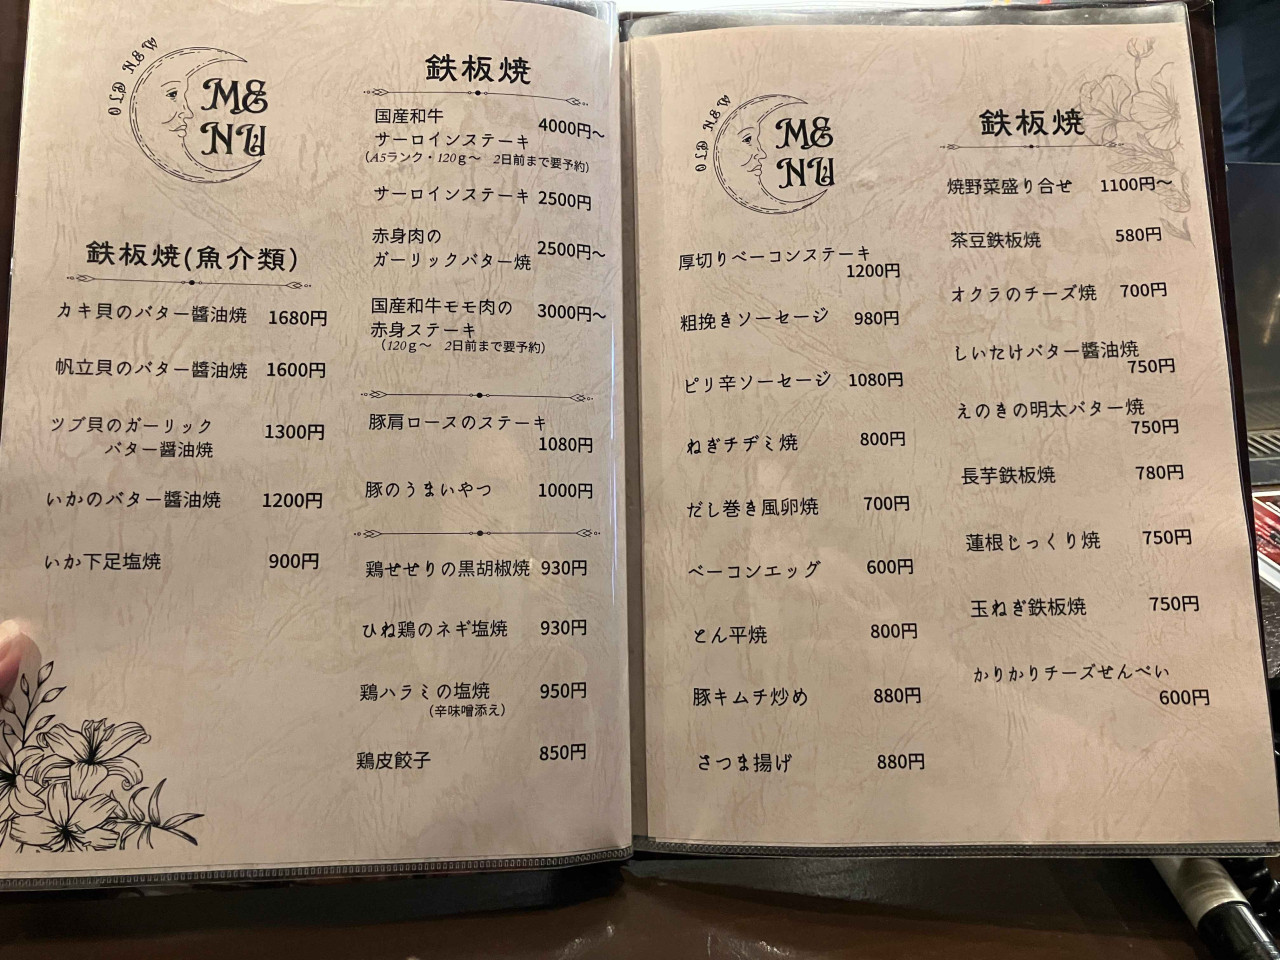 OLD NEW
ME
NU
鉄板焼(魚介類)
カキ貝のバター醬油焼 1680円
帆立貝のバター醬油焼 1600円
ツブ貝のガーリック
バター醤油焼 1300円
いかのバター醤油焼 1200円
いか下足塩焼 900円
鉄板焼
国産和牛
サーロインステーキ 4000円〜
(A5ランク・120g〜 2日前まで要予約)
サーロインステーキ 2500円
赤身肉の
ガーリックバター焼 2500円〜
国産和牛モモ肉の 3000円〜
赤身ステーキ
(120g〜 2日前まで要予約)
豚肩ロースのステーキ
1080円
豚のうまいやつ 1000円
鶏せせりの黒胡椒焼 930円
ひね鶏のネギ塩焼 930円
鶏ハラミの塩焼 950円
(辛味噌添え)
鶏皮餃子 850円
OLD NEW
ME
NU
厚切りベーコンステーキ
1200円
粗挽きソーセージ 980円
ピリ辛ソーセージ 1080円
ねぎチヂミ焼 800円
だし巻き風卵焼 700円
ベーコンエッグ 600円
とん平焼 800円
豚キムチ炒め 880円
さつま揚げ 880円
鉄板焼
焼野菜盛り合せ 1100円〜
茶豆鉄板焼 580円
オクラのチーズ焼 700円
しいたけバター醤油焼
750円
えのきの明太バター焼
750円
長芋鉄板焼 780円
蓮根じっくり焼 750円
玉ねぎ鉄板焼 750円
かりかりチーズせんべい
600円